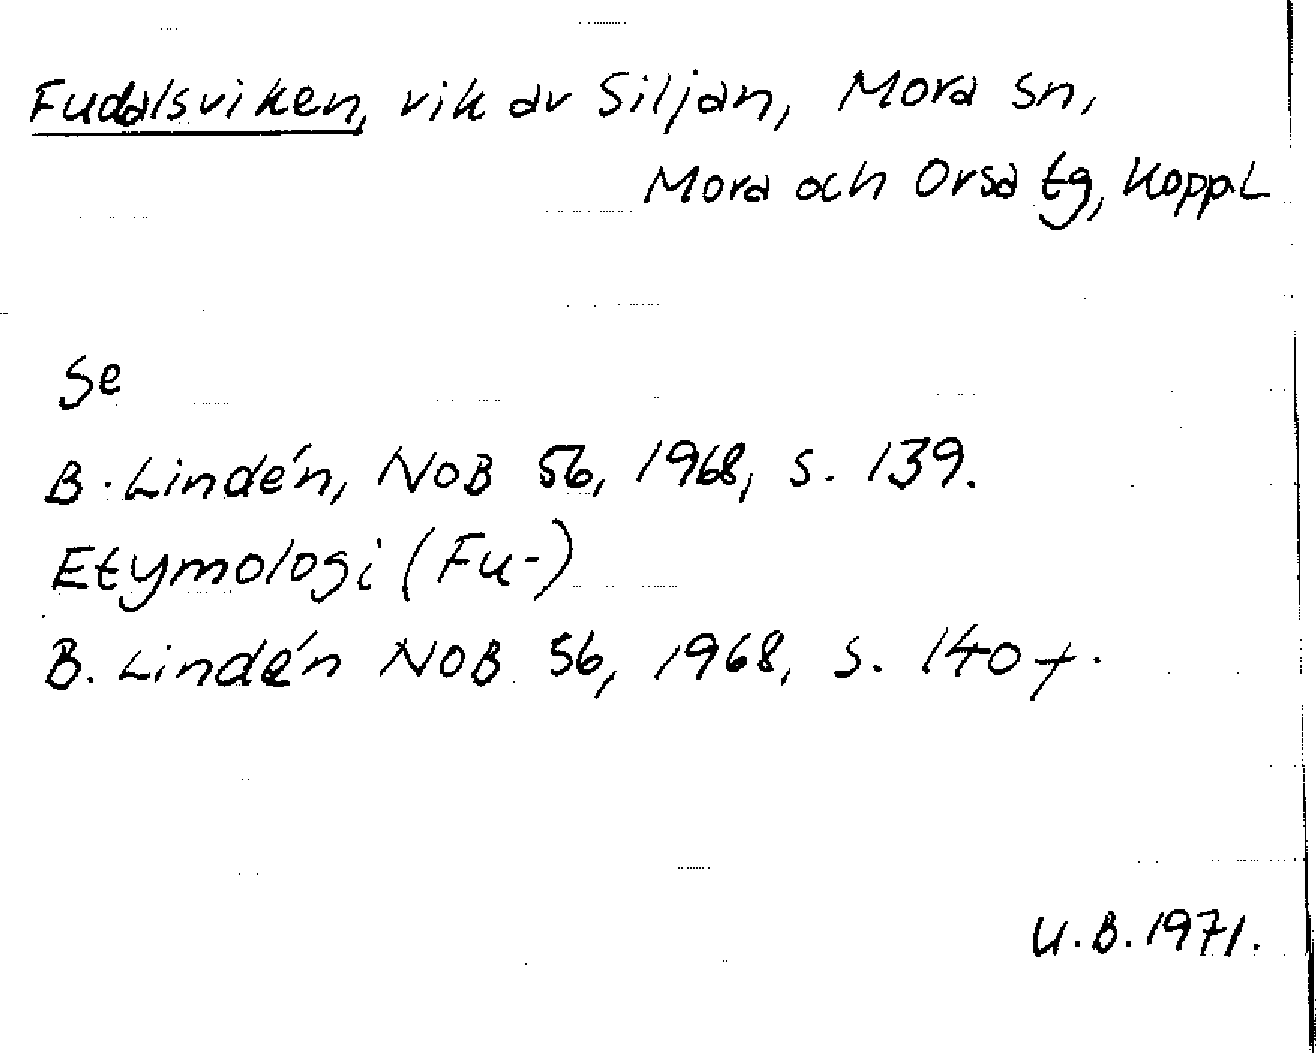 Fudalsviken, vik av Siljan, Mora sn,
Mora och Orsa tg, Kopp.L
Se
B. Lindén, NOB 56, 1968, s. 139.
Etymologi (Fu-)
B. Lindén NOB 56, 1968, s. 140 f.
U.B. 1971.